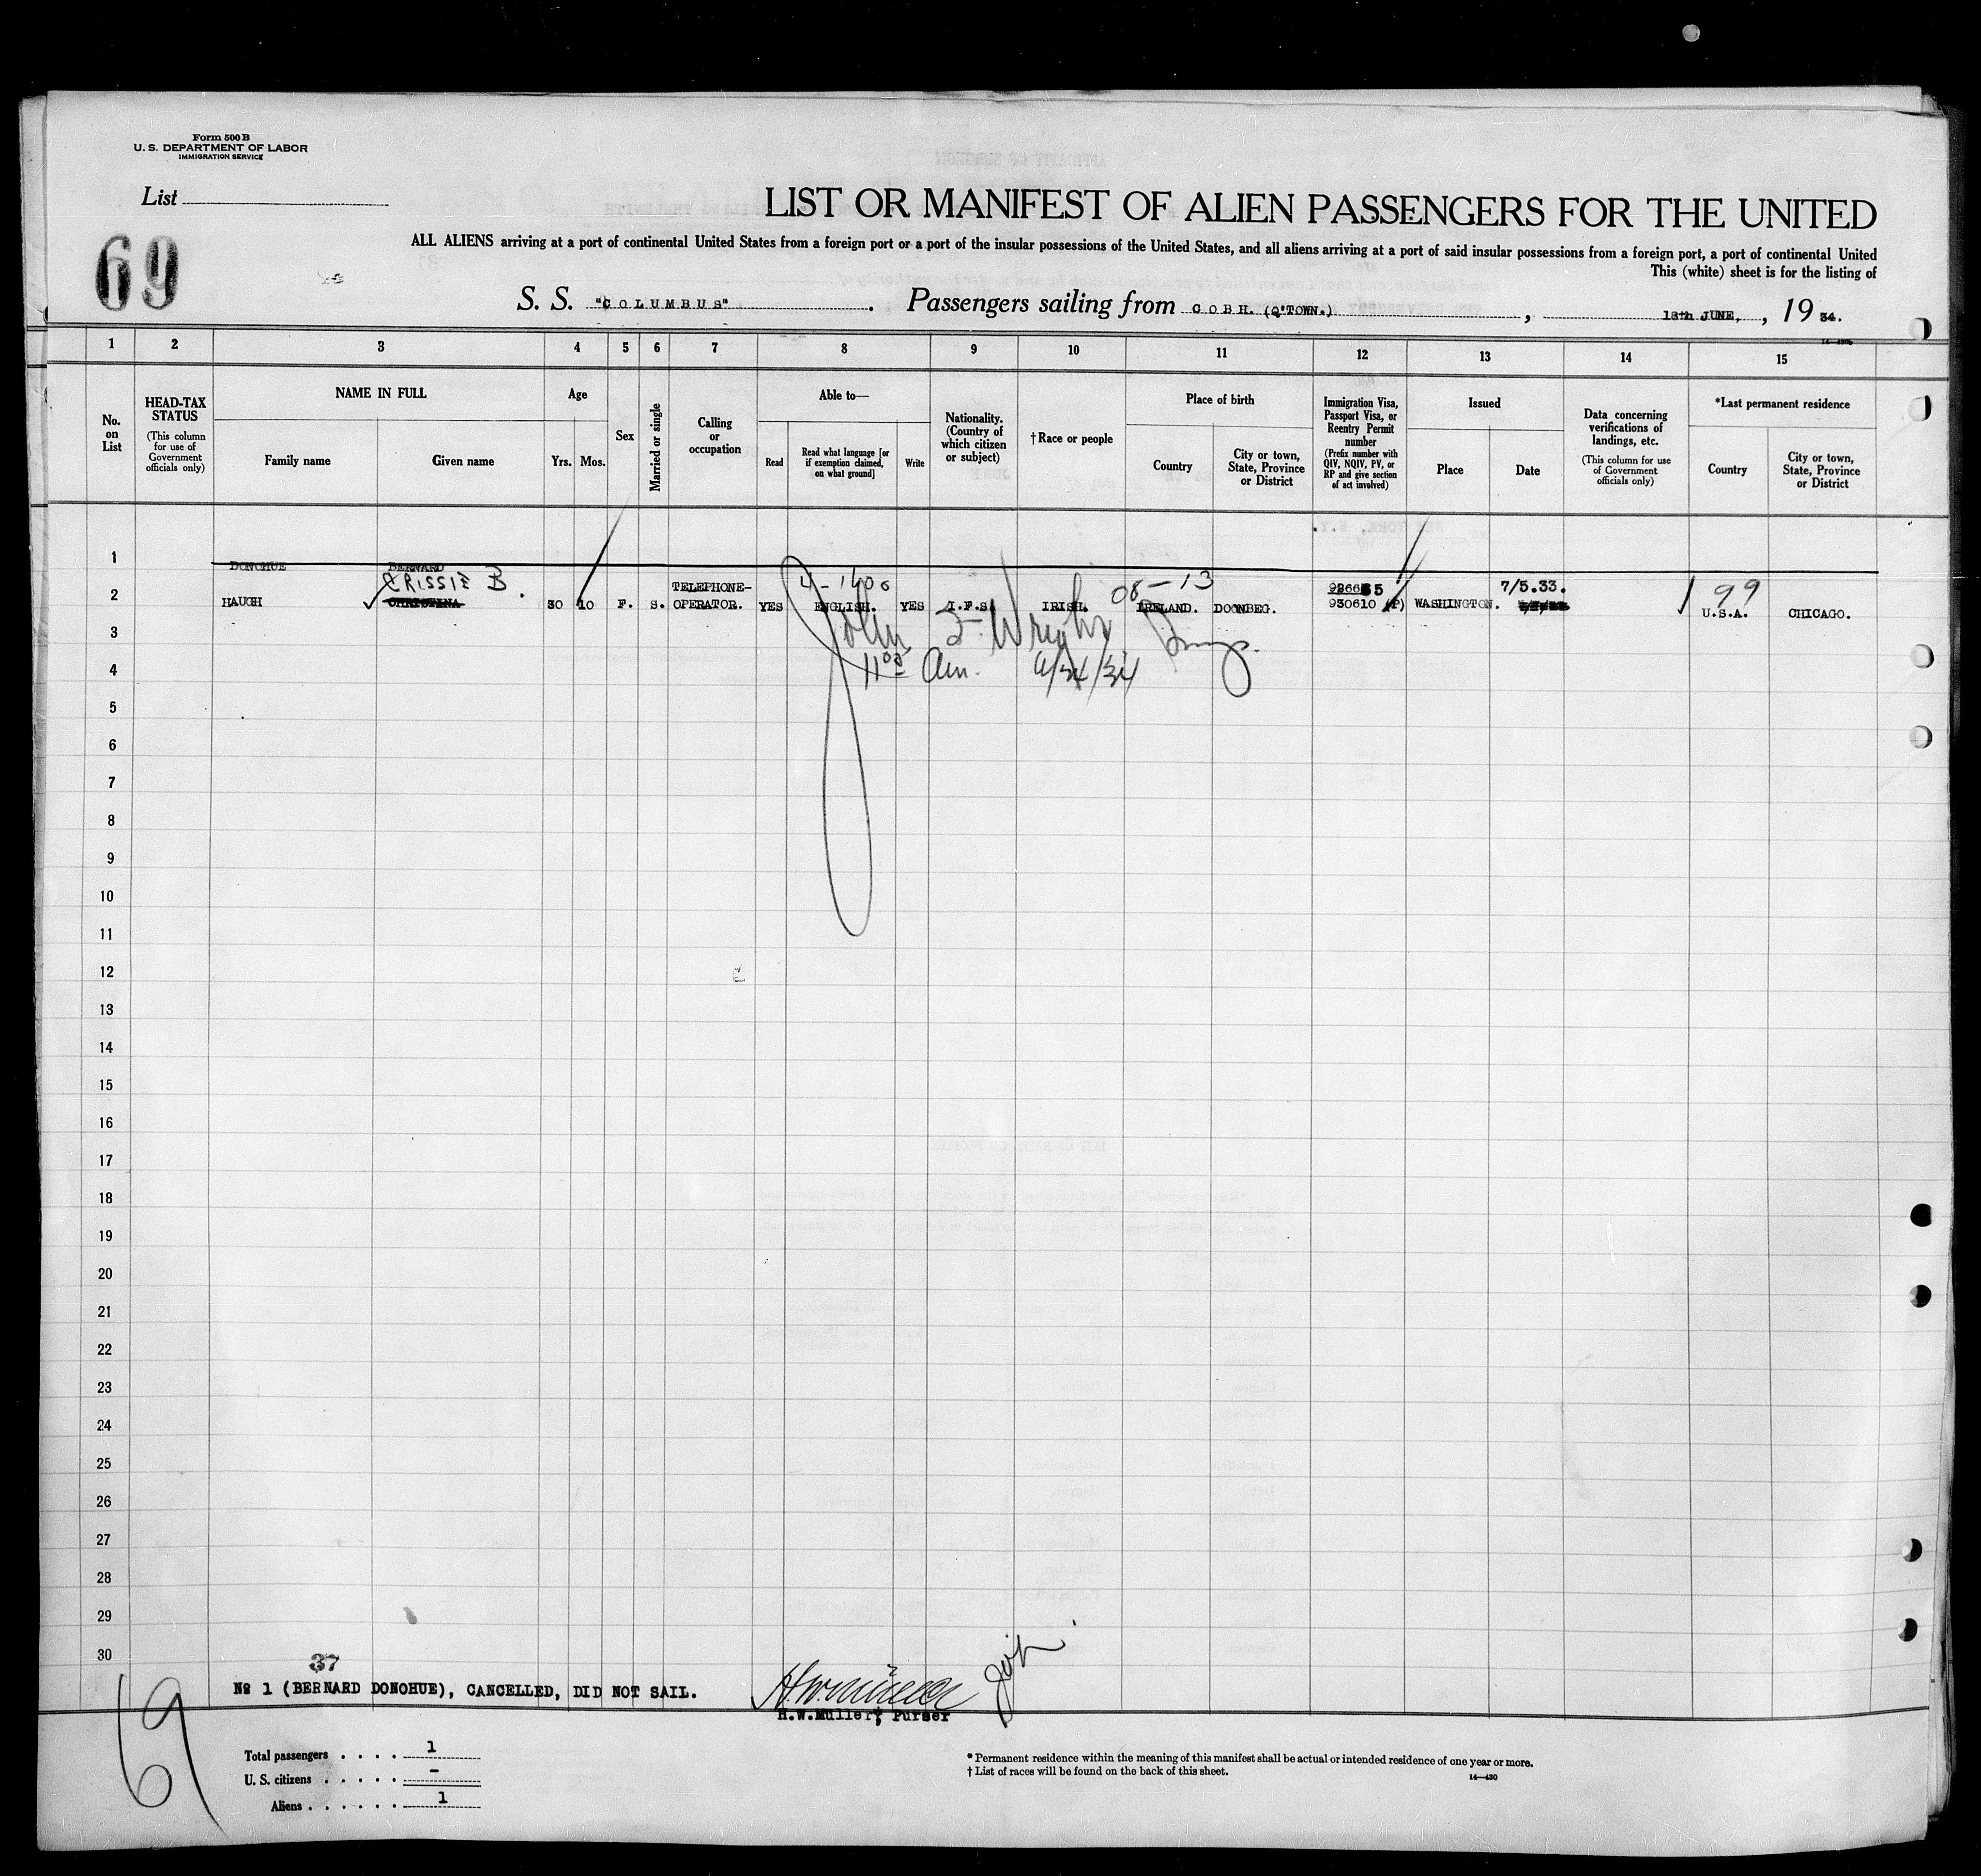 Form 500 B
U. S. DEPARTMENT OF LABOR
IMMIGRATION SERVICE
List
LIST OR MANIFEST OF ALIEN PASSENGERS FOR THE UNITED
69
ALL ALIENS arriving at a port of continental United States from a foreign port or a port of the insular possessions of the United States, and all aliens arriving at a port of said insular possessions from a foreign port, a port of continental United
This (white) sheet is for the listing of
S. S. "COLUMBUS". Passengers sailing from COBH. (Q'TOWN.), 18th JUNE, , 19 34.
1 2 3 4 5 6 7 8 9 10 11 12 13 14 15
No. on List
HEAD-TAX STATUS
(This column for use of Government officials only)
NAME IN FULL
Family name
Given name
Age
Yrs. Mos.
Sex
Married or single
Calling or occupation
Able to—
Read
Read what language [or if exemption claimed, on what ground]
Write
Nationality. (Country of which citizen or subject)
†Race or people
Place of birth
Country
City or town, State, Province or District
Immigration Visa, Passport Visa, or Reentry Permit number
(Prefix number with QIV, NQIV, PV, or RP and give section of act involved)
Issued
Place
Date
Data concerning verifications of landings, etc.
(This column for use of Government officials only)
*Last permanent residence
Country
City or town, State, Province or District
1 DONOHUE BERNARD
CRISSIE B. TELEPHONE- 4-1400 08-13 7/5.33. 99
2 HAUGH CHRISTINA 30 10 F. S. OPERATOR. YES ENGLISH. YES I.F.S. IRISH. IRELAND. DOONBEG. 930610 (P) WASHINGTON. U.S.A. CHICAGO.
3 John F. Wright
4 11 00 Am.
5
6
7
8
9
10
11
12
13
14
15
16
17
18
19
20
21
22
23
24
25
26
27
28
29
30
37
No 1 (BERNARD DONOHUE), CANCELLED, DID NOT SAIL.
H.W.Muller, Purser
69
Total passengers . . . . 1
U. S. citizens . . . . . -
Aliens . . . . . . 1
* Permanent residence within the meaning of this manifest shall be actual or intended residence of one year or more.
† List of races will be found on the back of this sheet.
14—430